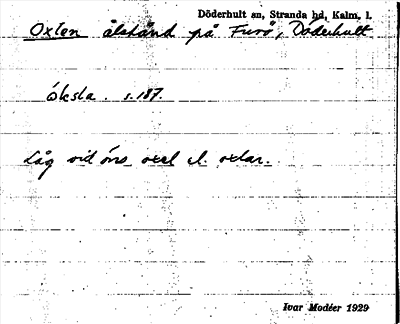 Döderhult sn, Stranda hd, Kalm. l.
Oxlen ålstånd på Furö, Döderhult
óksla. s.187.
Låg vid öns oxel el. oxlar.
Ivar Modéer 1929